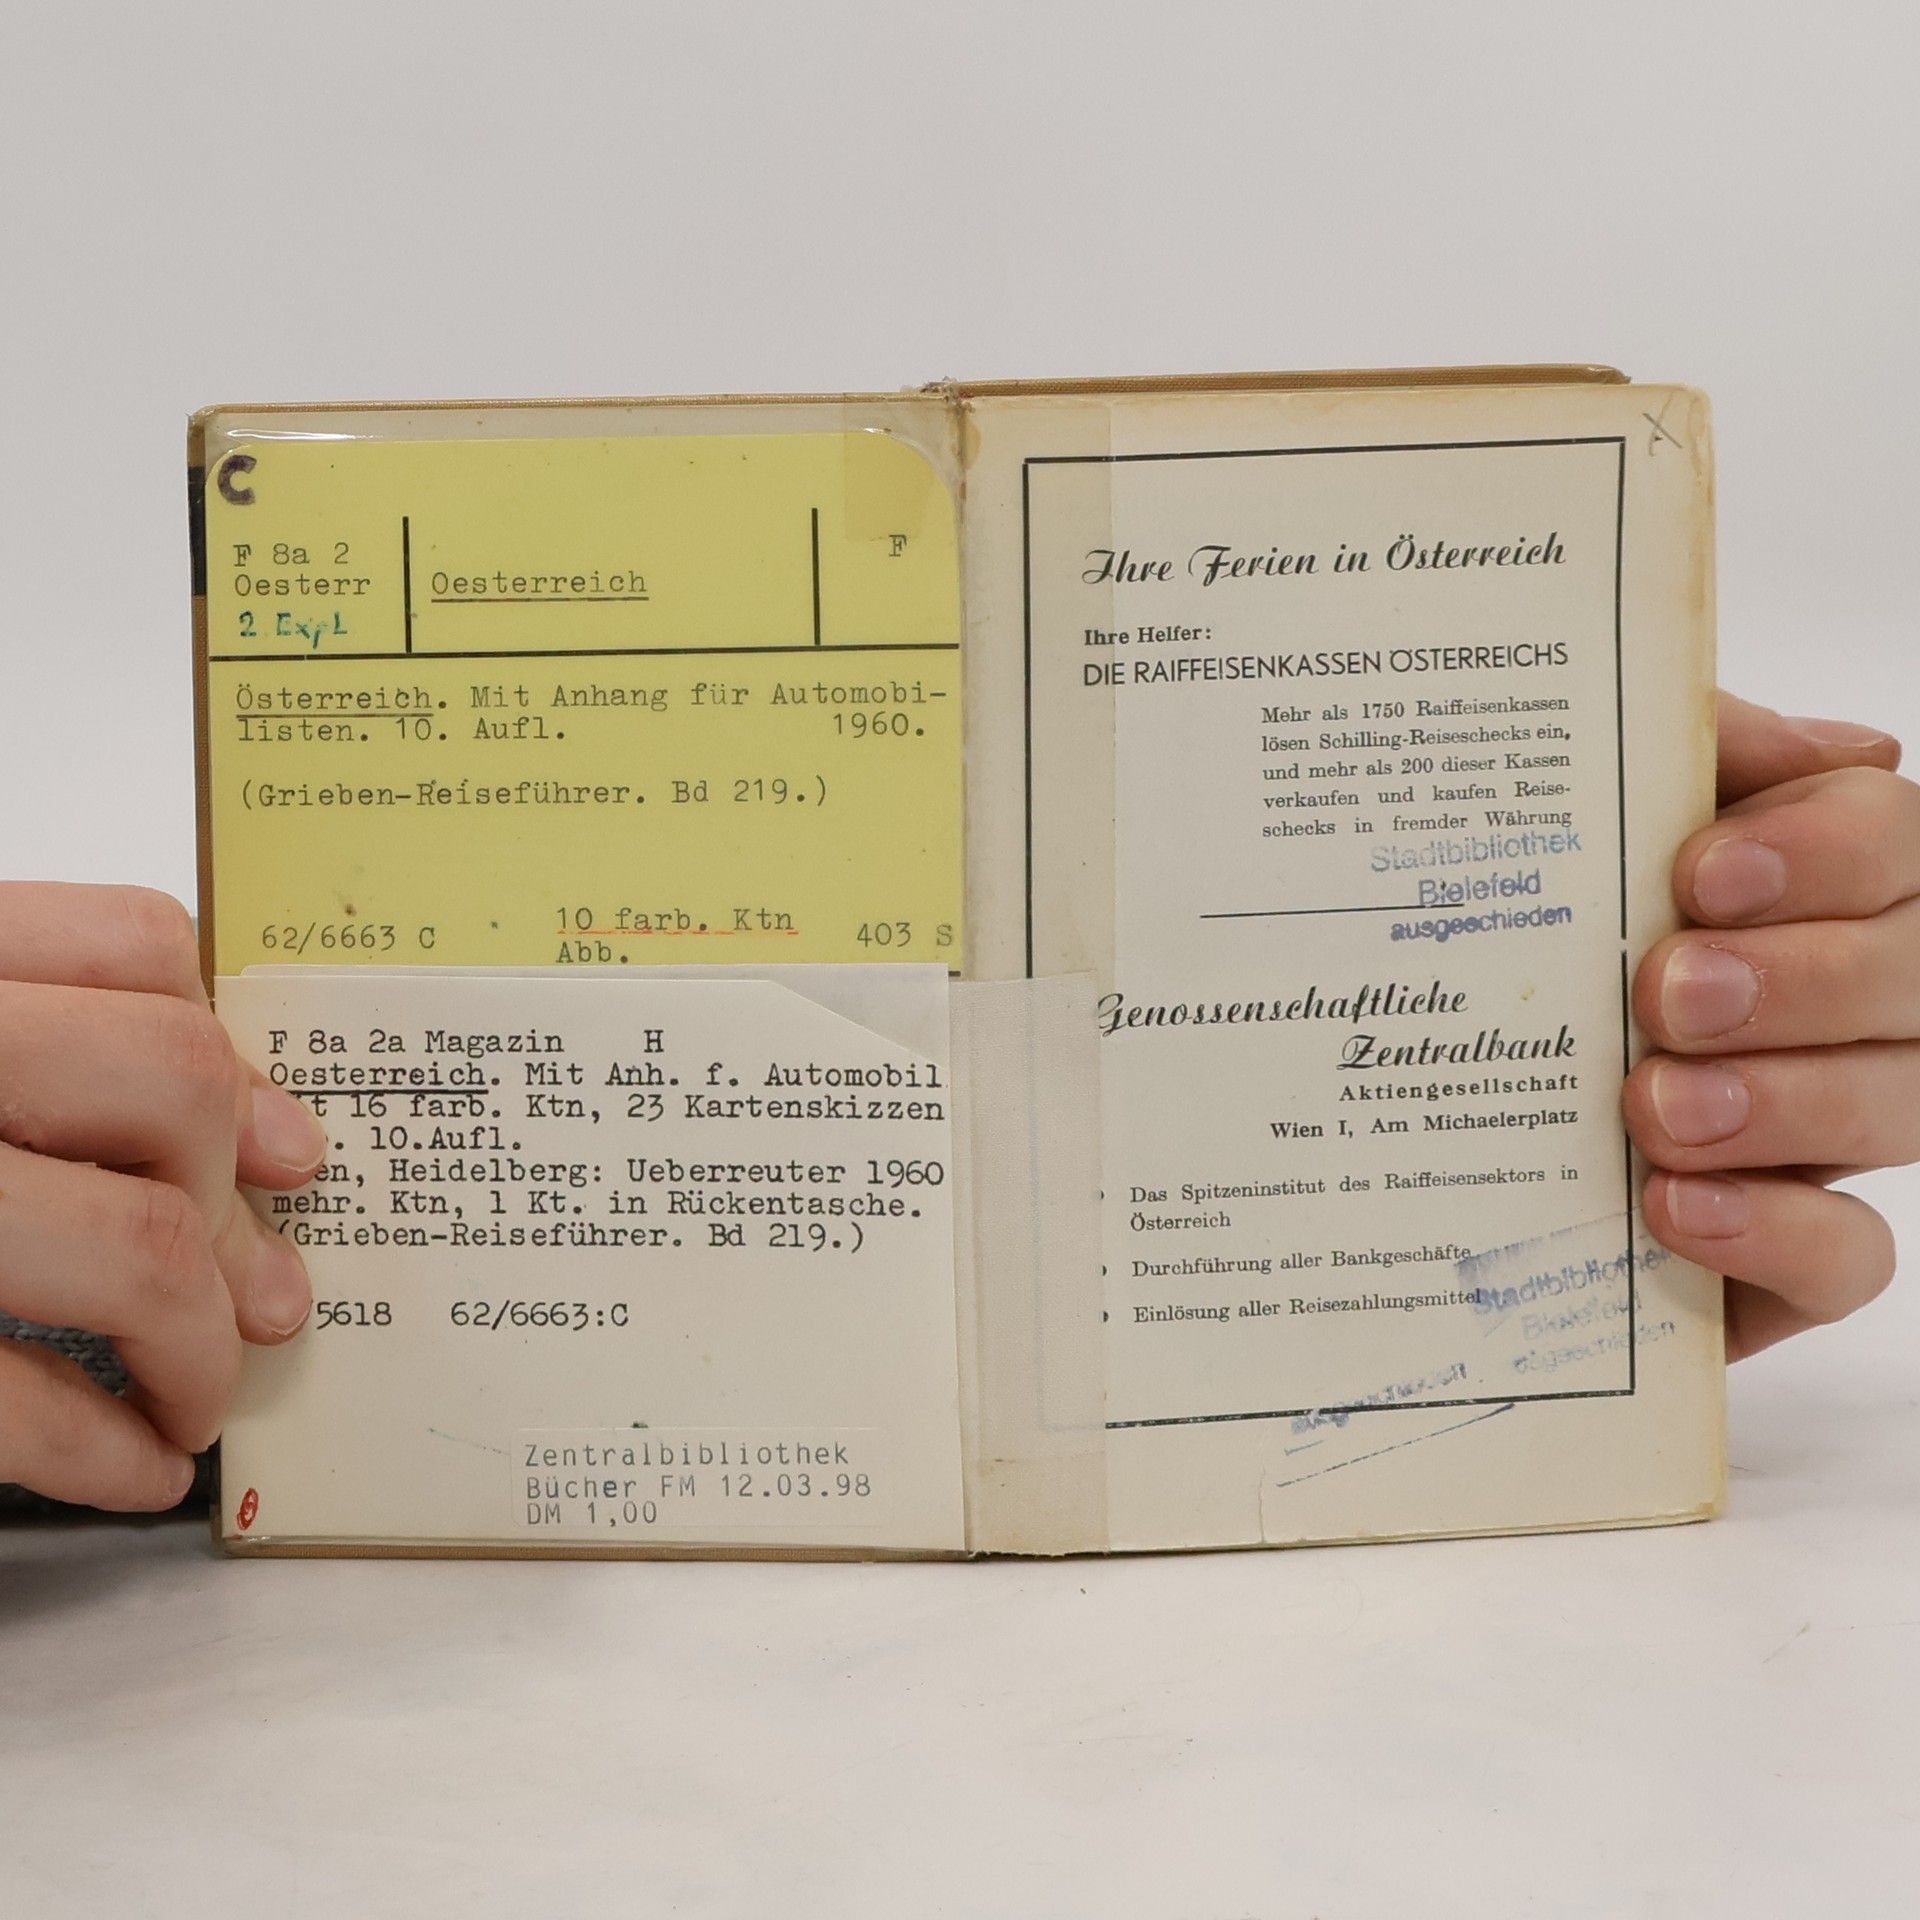 C
F 8a 2
Oesterr
2 Expl
Oesterreich
F
Österreich. Mit Anhang für Automobi-
listen. 10. Aufl. 1960.
(Grieben-Reiseführer. Bd 219.)
62/6663 C
10 farb. Ktn
Abb.
403 S
F 8a 2a Magazin H
Oesterreich. Mit Anh. f. Automobil
16 farb. Ktn, 23 Kartenskizzen
. 10.Aufl.
Heidelberg: Ueberreuter 1960
mehr. Ktn, 1 Kt. in Rückentasche.
(Grieben-Reiseführer. Bd 219.)
5618 62/6663:C
Zentralbibliothek
Bücher FM 12.03.98
DM 1,00
X
Ihre Ferien in Österreich
Ihre Helfer:
DIE RAIFFEISENKASSEN ÖSTERREICHS
Mehr als 1750 Raiffeisenkassen
lösen Schilling-Reiseschecks ein,
und mehr als 200 dieser Kassen
verkaufen und kaufen Reise-
schecks in fremder Währung
Stadtbibliothek
Bielefeld
ausgeschieden
Genossenschaftliche
Zentralbank
Aktiengesellschaft
Wien I, Am Michaelerplatz
Das Spitzeninstitut des Raiffeisensektors in
Österreich
Durchführung aller Bankgeschäfte
Einlösung aller Reisezahlungsmittel
Stadtbibliothek
Bielefeld
ausgeschieden
ausgeschieden